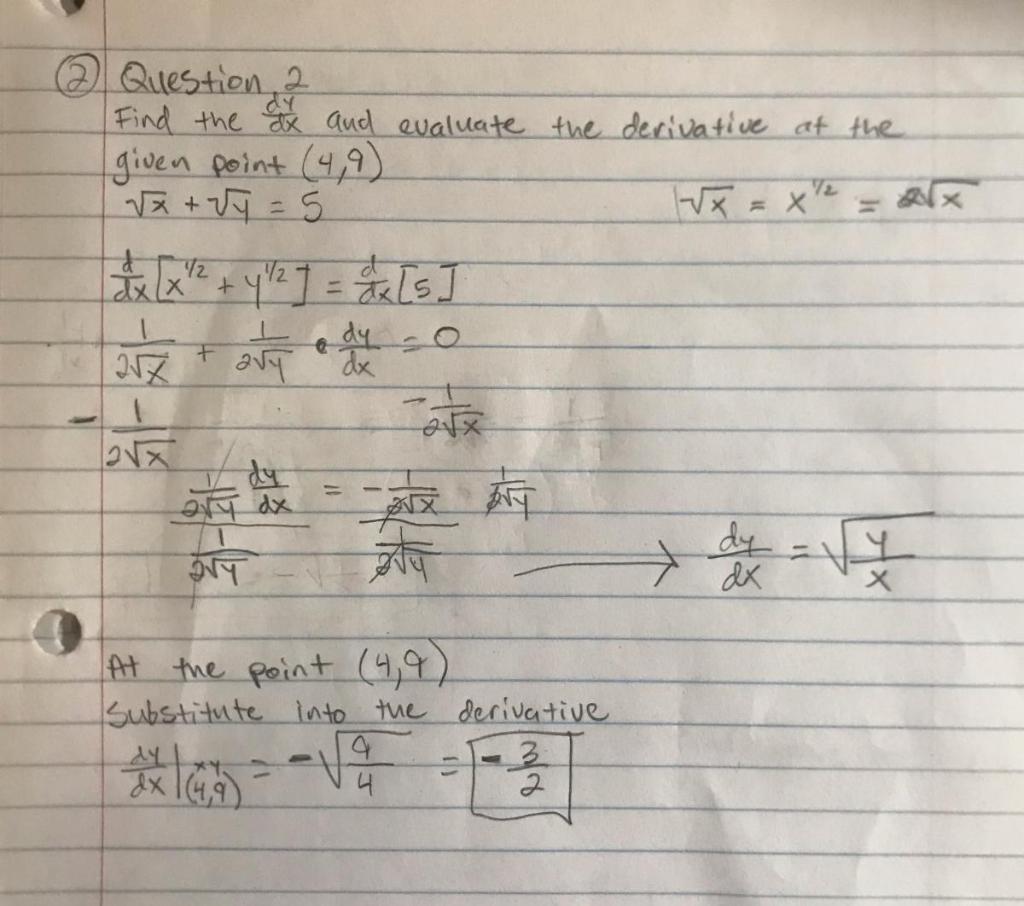 ② Question 2
Find the dy/dx and evaluate the derivative at the
given point (4,9)
√x + √y = 5
√x = x^1/2 = 2√x
d/dx [x^1/2 + y^1/2] = d/dx [5]
1/2√x + 1/2√y • dy/dx = 0
- 1/2√x - 1/2√x
1/2√y dy/dx = - 1/2√x 1/2√y
1/2√y 1/2√y → dy/dx = √y/x
At the point (4,9)
Substitute into the derivative
dy/dx | x y (4,9) = -√9/4 = - 3/2